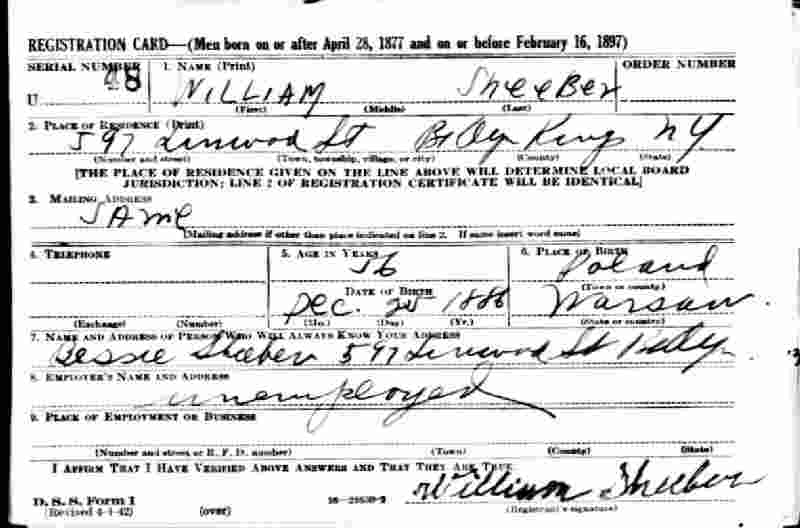 REGISTRATION CARD—(Men born on or after April 28, 1877 and on or before February 16, 1897)
SERIAL NUMBER 1. NAME (Print) ORDER NUMBER
U 48 WILLIAM SheeBer
(First) (Middle) (Last)
2. PLACE OF RESIDENCE (Print)
597 Linwood St Bklyn Kings NY
(Number and street) (Town, township, village, or city) (County) (State)
[THE PLACE OF RESIDENCE GIVEN ON THE LINE ABOVE WILL DETERMINE LOCAL BOARD
JURISDICTION; LINE 2 OF REGISTRATION CERTIFICATE WILL BE IDENTICAL]
3. MAILING ADDRESS
SAme
[Mailing address if other than place indicated on line 2. If same insert word same]
4. TELEPHONE 5. AGE IN YEARS 6. PLACE OF BIRTH
56 Poland
DATE OF BIRTH (Town or county)
Dec. 25 1886 Warsaw
(Exchange) (Number) (Mo.) (Day) (Yr.) (State or country)
7. NAME AND ADDRESS OF PERSON WHO WILL ALWAYS KNOW YOUR ADDRESS
Bessie Sheeber 597 Linwood St Bklyn
8. EMPLOYER'S NAME AND ADDRESS
unemployed
9. PLACE OF EMPLOYMENT OR BUSINESS
(Number and street or R. F. D. number) (Town) (County) (State)
I AFFIRM THAT I HAVE VERIFIED ABOVE ANSWERS AND THAT THEY ARE TRUE.
William Sheeber
D. S. S. Form 1
(Revised 4-1-42) (over) (Registrant's signature)